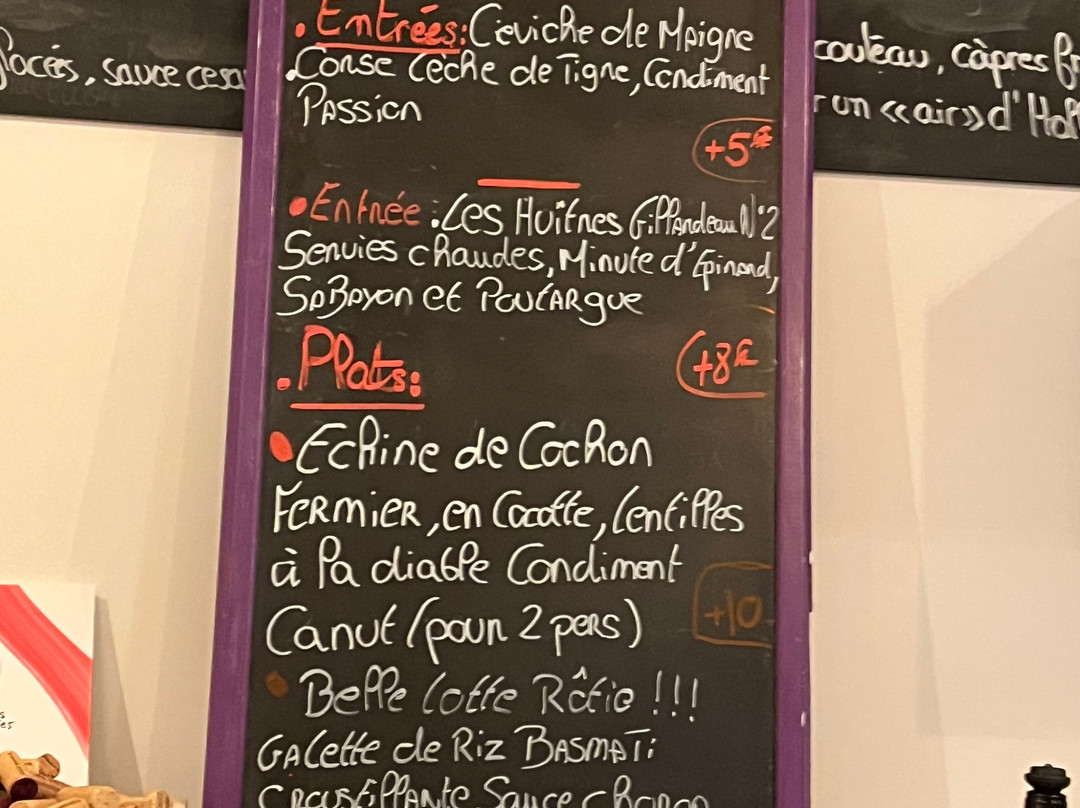 • Entrées: Ceviche de Maigre
Corse Lèche de Tigre, Condiment
Passion
+5€
• Entrée : Les Huîtres Gillardeau N°2
Servies chaudes, Minute d'Epinard,
SaBayon et Poutargue
• Plats:
+8€
• Echine de Cochon
Fermier, en Cocotte, Lentilles
à la diable Condiment
Canut (pour 2 pers)
+10
• Belle Lotte Rôtie !!!
Galette de Riz BASMATi
Croustillante Sauce choron
sauce
couteau, càpres
un «air» d'